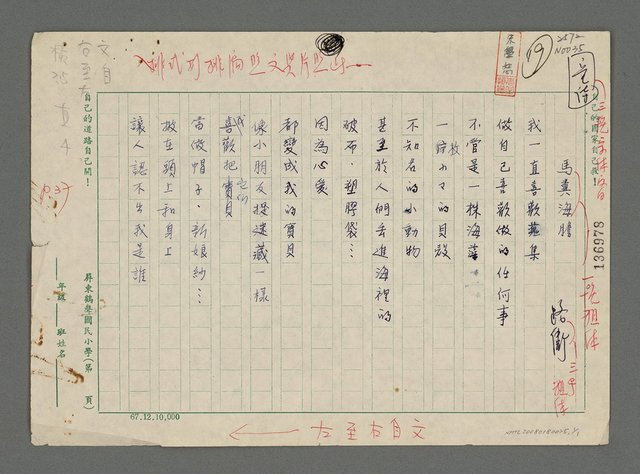 馬糞海膽
路衛
我一直喜歡蒐集
做自己喜歡做的任何事
不管是一株海藻
一枚小小的貝殼
不知名的小動物
甚至於人們丟進海裡的
破布·塑膠袋…
因為心愛
都變成我的寶貝
像小朋友捉迷藏一樣
我喜歡把它們寶貝
當做帽子·新娘紗…
披在頭上和身上
讓人認不出我是誰
自己的國家自己救!
自己的道路自己開!
屏東鶴聲國民小學(第 頁)
年級 班姓名
67.12.10,000
136978
19
2572
N0035
三號
粗体
一號粗体
左至右自文
文自
左至右
橫排
P37
XML20080180075_V1